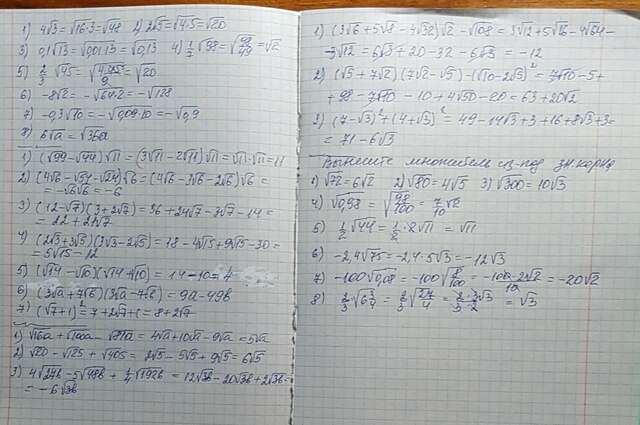 1) 4√3 = √16·3 = √48  2) 2√5 = √4·5 = √20
3) 0,1√13 = √0,01·13 = √0,13  4) 1/7 √98 = √98/49 = √2
5) 2/3 √45 = √4·45/9 = √20
6) -8√2 = -√64·2 = -√128
7) -0,3√10 = -√0,09·10 = -√0,9
8) 6√a = √36a
1) (√99 - √44)√11 = (3√11 - 2√11)√11 = √11·√11 = 11
2) (4√6 - √54 - √24)√6 = (4√6 - 3√6 - 2√6)√6 =
= -√6√6 = -6
3) (12-√7)(3+2√7) = 36 + 24√7 - 3√7 - 14 =
= 22 + 21√7
4) (2√3+3√5)(3√3-2√5) = 18 - 4√15 + 9√15 - 30 =
= 5√15 - 12
5) (√14 - √10)(√14 + √10) = 14 - 10 = 4
6) (3√a + 7√b)(3√a - 7√b) = 9a - 49b
7) (√7+1)² = 7 + 2√7 + 1 = 8 + 2√7
1) √16a + √100a - √81a = 4√a + 10√a - 9√a = 5√a
2) √20 - √125 + √405 = 2√5 - 5√5 + 9√5 = 6√5
3) 4√27b - 5√48b + 1/4√192b = 12√3b - 20√3b + 2√3b =
= -6√3b
1) (3√6 + 5√8 - 4√32)√2 - √108 = 3√12 + 5√16 - 4√64 -
- 3√12 = 6√3 + 20 - 32 - 6√3 = -12
2) (√5 + 7√2)(7√2 - √5) - (√10 - 2√5)² = 7√10 - 5 +
+ 98 - 7√10 - 10 + 4√50 - 20 = 63 + 20√2
3) (7-√3)² + (4+√3)² = 49 - 14√3 + 3 + 16 + 8√3 + 3 =
= 71 - 6√3
Вынесите множитель из-под зн корня
1) √72 = 6√2  2) √80 = 4√5  3) √300 = 10√3
4) √0,98 = √98/100 = 7/10 √2
5) 1/2 √44 = 1/2 · 2√11 = √11
6) -2,4√75 = -2,4·5√3 = -12√3
7) -100√0,08 = -100√8/100 = -100·2√2/10 = -20√2
8) 2/3 √6 3/4 = 2/3 √27/4 = 2/3 · 3√3/2 = √3